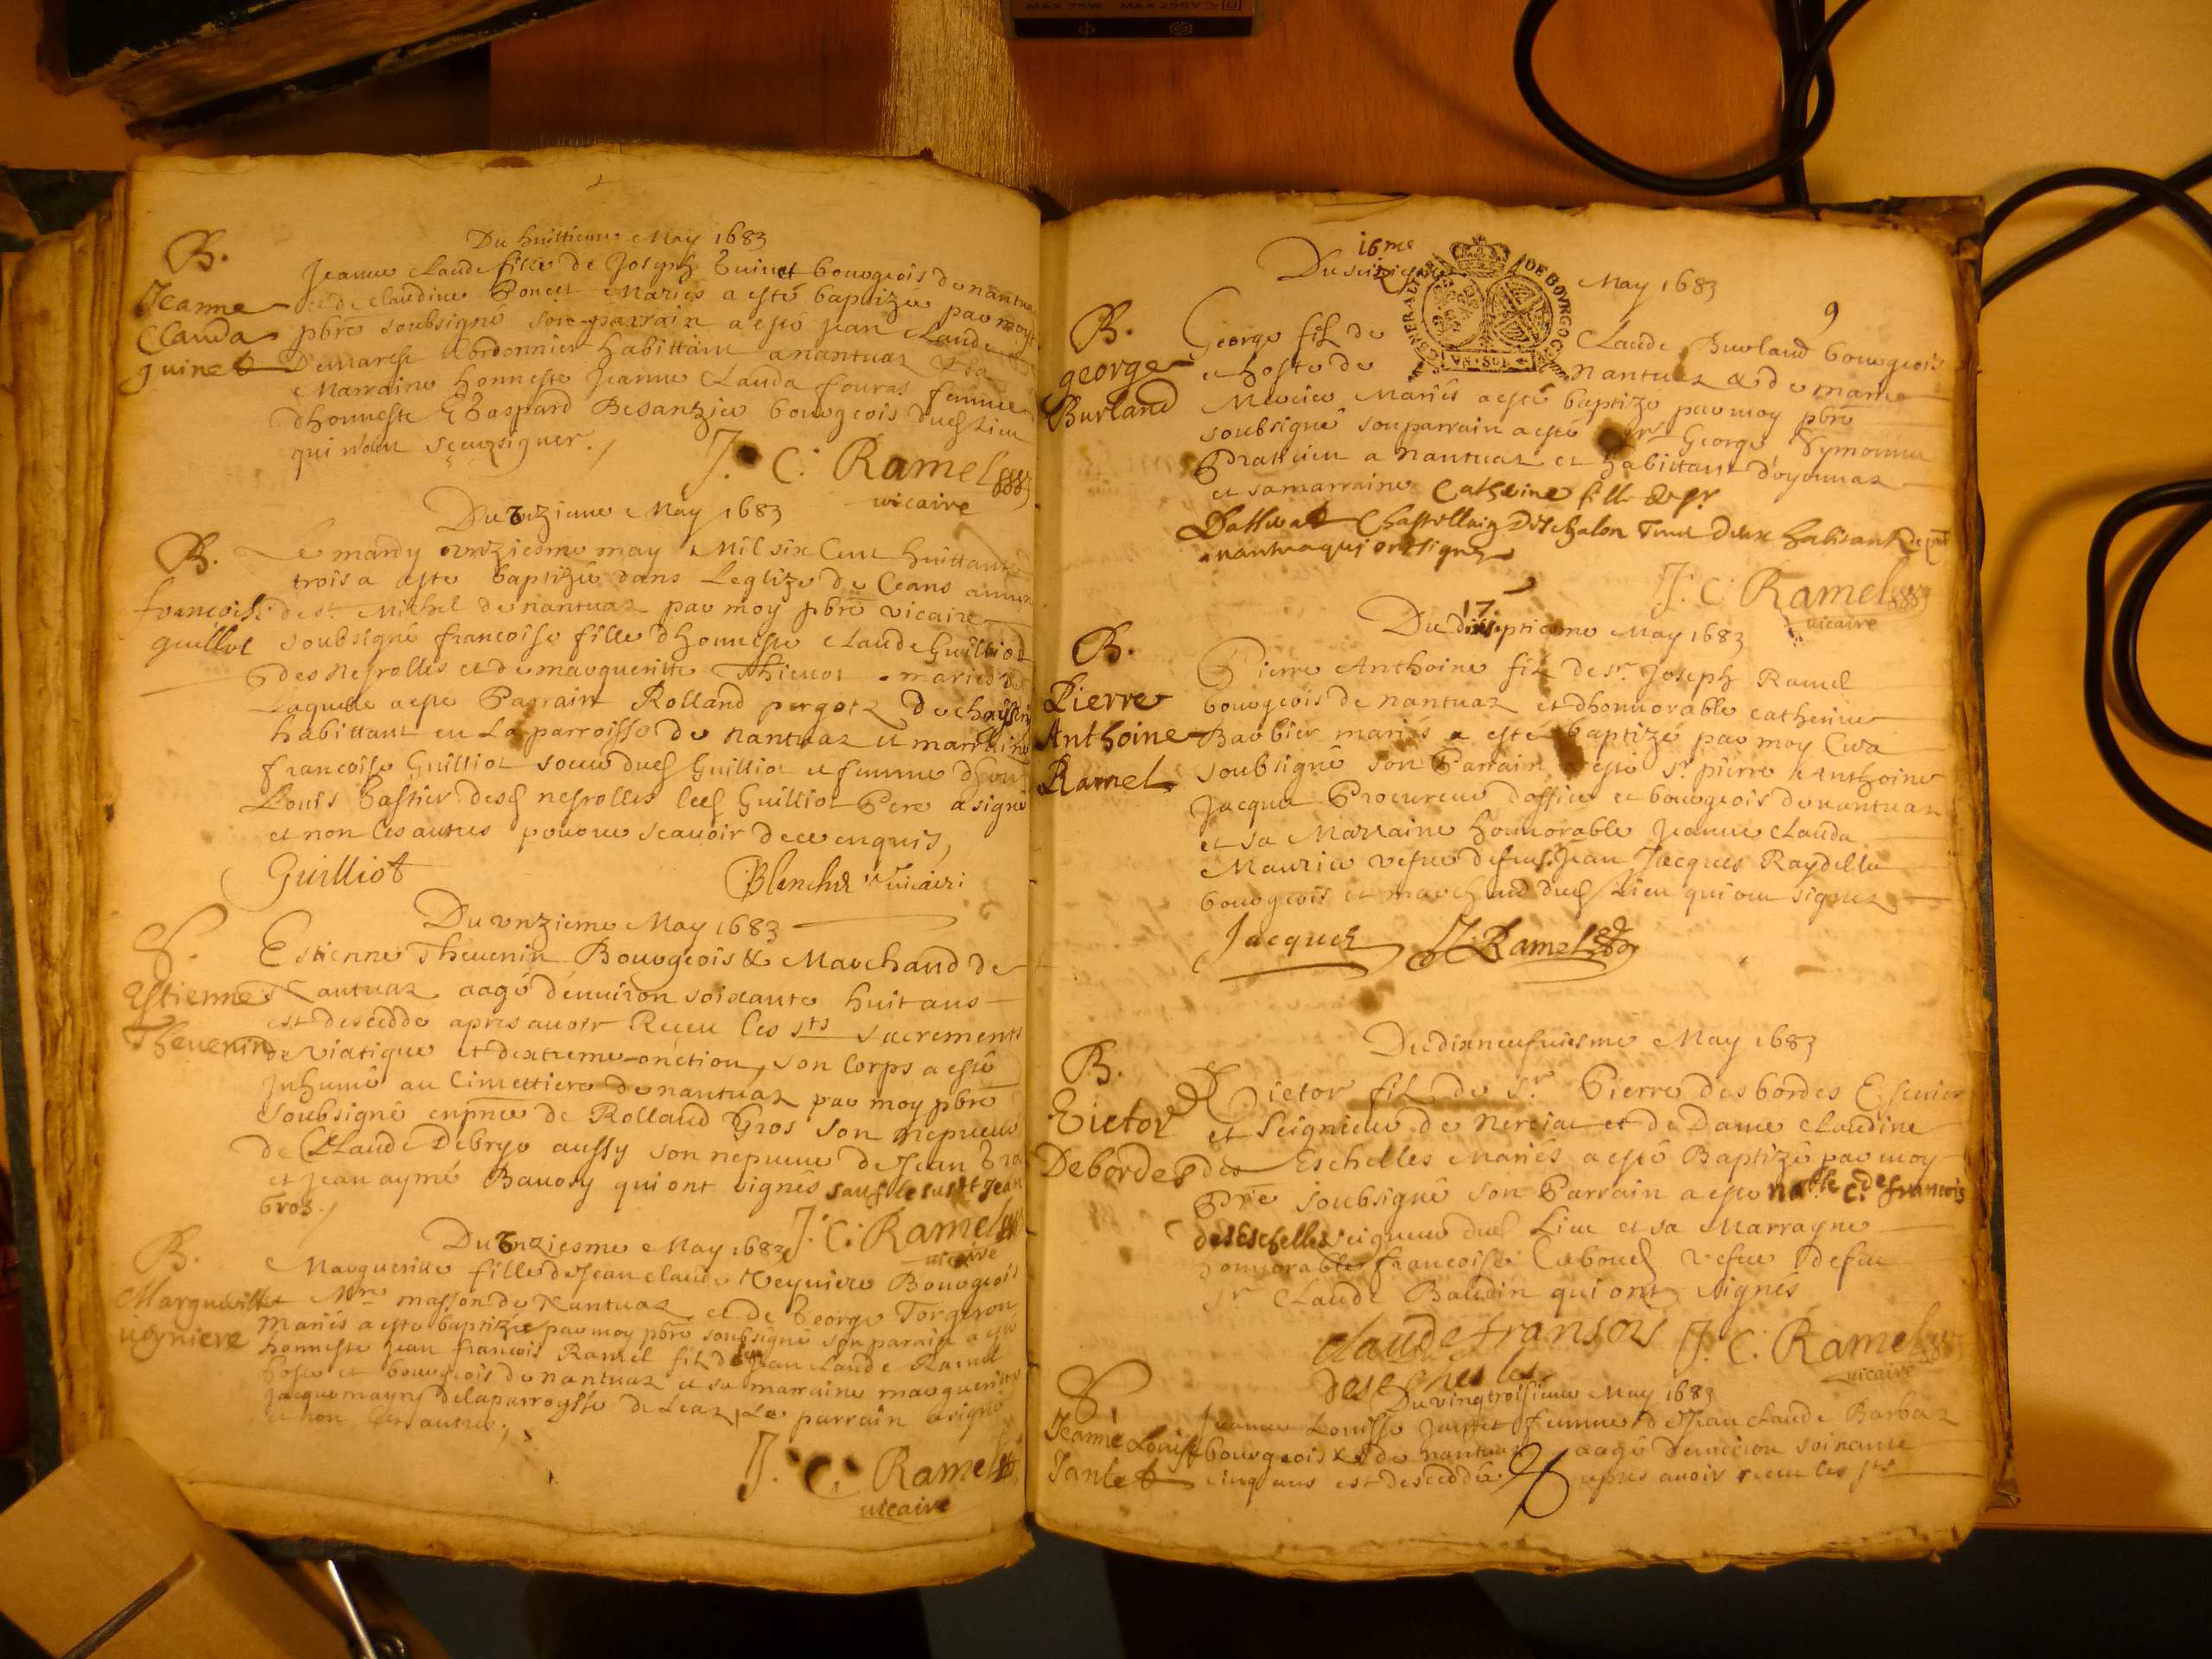 MAX 75W MAX 250V
Du huittieme May 1683
B.
Jeanne
Clauda
guinet
Jeanne Claude fille de Joseph Guinet bourgeois de nantua
et de Claudine Poncet Mariés a esté baptizee par moy
pbre soubsigné son parrain a esté Jean Claude
Demarest Cordonnier habittant a nantuaz & sa
Marraine honneste Jeanne Clauda fouras femme
dhonneste Gaspard Besanzieu bourgeois dud Lieu
qui nont sceu signer.
J. C. Ramel
vicaire
Du unzieme May 1683
B.
francoise
guilliot
Le mardy unziesme may Mil six Cent huittante
trois a esté baptizée dans Leglize de Ceans
de st Michel de nantuaz par moy pbre vicaire
soubsigné francoise fille dhonneste Claude Guilliot
des Neyrolles et de margueritte Thieuot mariés de
Laquelle a esté Parrain Rolland pergotz de
habittant en La parroisse de nantuaz et marraine
francoise Guilliot soeur dud Guilliot et femme
Louis Bastier desd neyrolles led Guilliot Pere a signé
et non les autres pour ne scauoir de ce enquis,
Guilliot
Blanchet vicaire
Du vnzieme May 1683
S.
Estienne
Theuenin
Estienne Theuenin Bourgeois & Marchand de
Nantuaz aagé denuiron soixante huit ans
est descedde apres auoir Receu les sts sacrements
de viatique et dextreme onction, son Corps a esté
Inhumé au Cimettiere de nantuaz par moy pbre
soubsigné en pnce de Rolland Gros son nepueu
de Claude Debryo aussy son nepueu de Jean Gros
et Jean aymé Bauory qui ont signés sauf le susdt Jean
Gros.
J. C. Ramel
vicaire
Du Vnziesme May 1683
B.
Margueritte
ueyniere
Margueritte fille de Jean claude Veyniere Bourgeois
Mre masson de Nantuaz et de George Torgeron
Mariés a esté baptizée par moy pbre soubsigné son parain a esté
honneste Jean francois Ramel fils de feu Jean claude Ramel
hoste et bourgeois de nantuaz et sa marraine margueritte
Jacquemayns de la parroysse de Leaz, Le parrain a signé
et non les autres,
J. C. Ramel
vicaire
16me
Du seiziesme May 1683
GENERALITE DE BOVRGOGNE
9
B.
george
Burland
George fils de Claude Burland bourgeois
& hoste de Nantuaz & de marie
Mercier Mariés a esté baptizé par moy pbre
soubsigné son parrain a esté George Symonnet
Praticien a nantuaz et habittant doyonnaz
et sa marraine Catherine fille de sr
Chastellain Deschalon Tous deux habitants de
nantua qui ont signez
J. C. Ramel
vicaire
17.
Du dixseptiesme May 1683
B.
Pierre
Anthoine
Ramel
Pierre Anthoine fils de sr Joseph Ramel
bourgeois de nantuaz et dhonnorable catherine
Barbier mariés a esté baptizé par moy Cura
soubsigné son Parrain a esté sr pierre Anthoine
Jacquet Procureur doffice et bourgeois de nantuaz
et sa Marraine honnorable Jeanne Clauda
Maurice vefue de feu sr Jean Jacques Raydellet
bourgeois et marchand dud Lieu qui ont signez
Jacquet J. Ramel
Du dixneufuiesme May 1683
B.
Victor
Debordes
Victor fils de Sr Pierre des bordes Escuier
et Seigneur de Nerciat et de Dame Claudine
des Eschelles Mariés a esté Baptizé par moy
Pbre soubsigné son Parrain a esté noble C.de francois
des Eschelles seigneur dud Lieu et sa Marrayne
honnorable francoise vefue de feu
sr Claude Baudin qui ont signés
claude fransois J. C. Ramel
des eschelles vicaire
Du vingtroisieme May 1683
S.
Jeanne Louise
Jantet
Jeanne Louisse Jantet femme de Jean claude Barbaz
bourgeois de nantuaz aagé denuiron soixante
cinq ans est desceddée apres auoir receu les sts